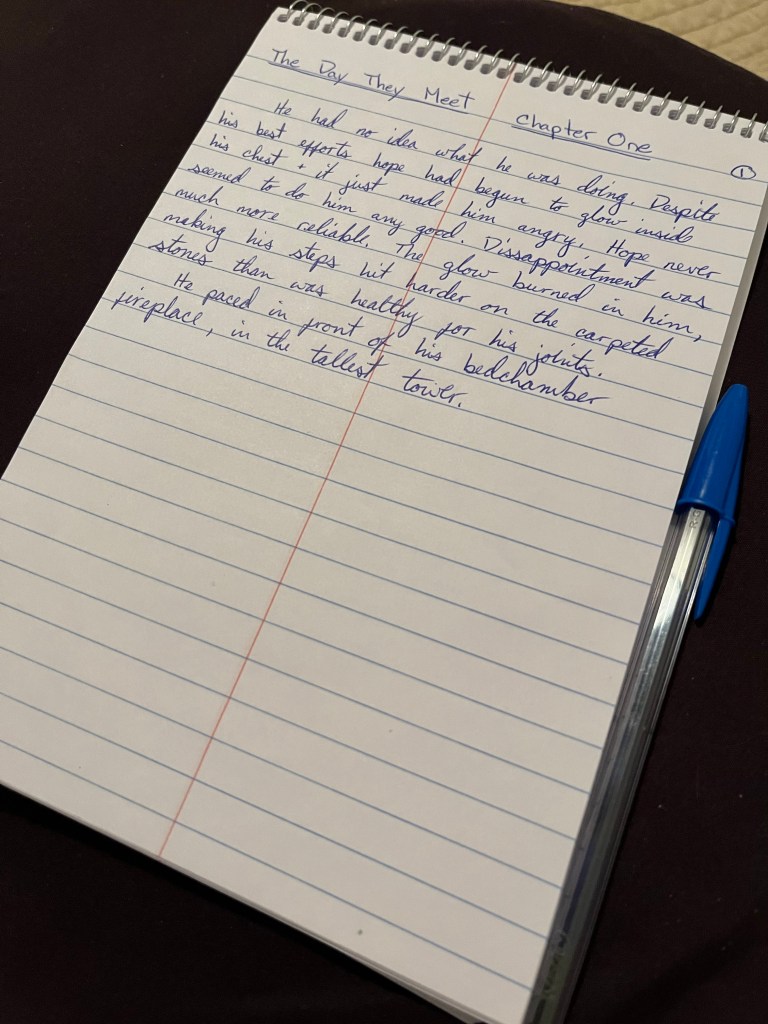 The Day They Meet Chapter One
①
He had no idea what he was doing. Despite
his best efforts hope had begun to glow inside
his chest + it just made him angry. Hope never
seemed to do him any good. Dissappointment was
much more reliable. The glow burned in him,
making his steps hit harder on the carpeted
stones than was healthy for his joints.
He paced in front of his bedchamber
fireplace, in the tallest tower.